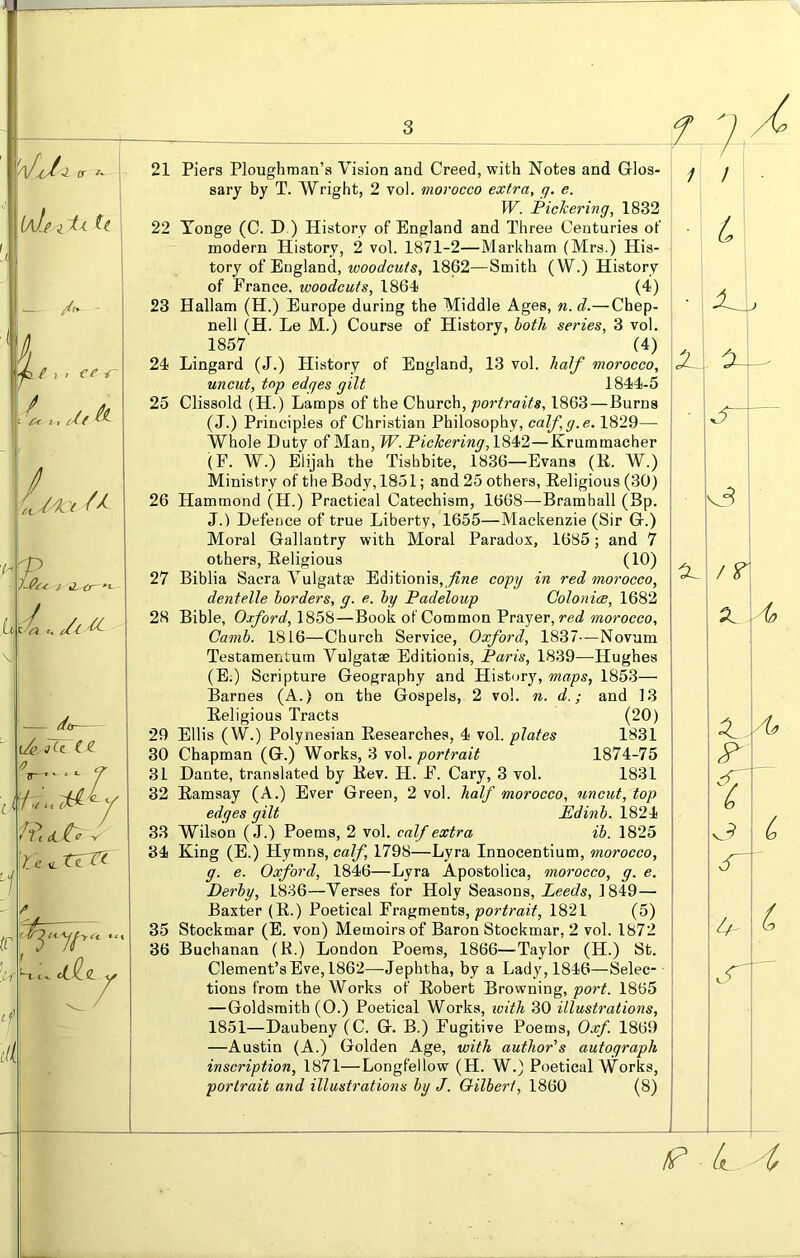 3
21 Piers Ploughman's Vision and Creed, with Notes and Glos-
sary by T. Wright, 2 vol. morocco extra, g. e.
W. Pickering, 1832
22 Yonge (C. D.) History of England and Three Centuries of
modern History, 2 vol. 1871-2—Markham (Mrs.) His-
tory of England, woodcuts, 1862—Smith (W.) History
of France, woodcuts, 1864 (4)
23 Hallam (H.) Europe during the Middle Ages, n. d.—Chep-
nell (H. Le M.) Course of History, both series, 3 vol.
1857 (4)
24 Lingard (J.) History of England, 13 vol. half morocco,
uncut, top edges gilt 1844-5
25 Clissold (H.) Lamps of the Church, portraits, 1863—Burns
(J.) Principles of Christian Philosophy, calf, g. e. 1829—
Whole Duty of Man, W. Pickering, 1842—Krummacher
(F. W.) Elijah the Tishbite, 1836—Evans (R. W.)
Ministry of the Body, 1851; and 25 others, Religious (30)
26 Hammond (H.) Practical Catechism, 1668—Bramhall (Bp.
J.) Defence of true Liberty, 1655—Mackenzie (Sir G.)
Moral Gallantry with Moral Paradox, 1685; and 7
others, Religious (10)
27 Biblia Sacra Vulgatæ Editionis, fine copy in red morocco,
dentelle borders, g. e. by Padeloup Coloniæ, 1682
28 Bible, Oxford, 1858—Book of Common Prayer, red morocco,
Camb. 1816—Church Service, Oxford, 1837—Novum
Testamentum Vulgatæ Editionis, Paris, 1839—Hughes
(E.) Scripture Geography and History, maps, 1853—
Barnes (A.) on the Gospels, 2 vol. n. d.; and 13
Religious Tracts (20)
29 Ellis (W.) Polynesian Researches, 4 vol. plates 1831
30 Chapman (G.) Works, 3 vol. portrait 1874-75
31 Dante, translated by Rev. H. F. Cary, 3 vol. 1831
32 Ramsay (A.) Ever Green, 2 vol. half morocco, uncut, top
edges gilt Edinb. 1824
33 Wilson (J.) Poems, 2 vol. calf extra ib. 1825
34 King (E.) Hymns, calf, 1798—Lyra Innocentium, morocco,
g. e. Oxford, 1846—Lyra Apostolica, morocco, g. e.
Derby, 1836—Verses for Holy Seasons, Leeds, 1849—
Baxter (R.) Poetical Fragments, portrait, 1821 (5)
35 Stockmar (E. von) Memoirs of Baron Stockmar, 2 vol. 1872
36 Buchanan (R.) London Poems, 1866—Taylor (H.) St.
Clement's Eve, 1862—Jephtha, by a Lady, 1846—Selec-
tions from the Works of Robert Browning, port. 1865
—Goldsmith (O.) Poetical Works, with 30 illustrations,
1851—Daubeny (C. G. B.) Fugitive Poems, Oxf. 1869
—Austin (A.) Golden Age, with author's autograph
inscription, 1871—Longfellow (H. W.) Poetical Works,
portrait and illustrations by J. Gilbert, 1860 (8)